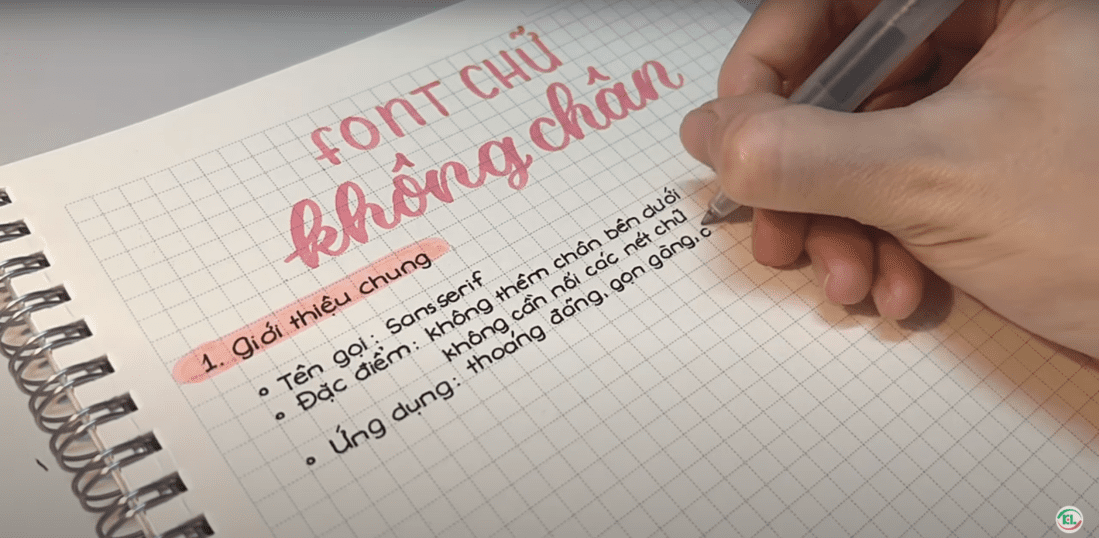 FONT CHỮ
không chân
1. Giới thiệu chung
• Tên gọi: Sans serif
• Đặc điểm: không thêm chân bên dưới
không cần nối các nét chữ
• Ứng dụng: thoáng đãng, gọn gàng, c